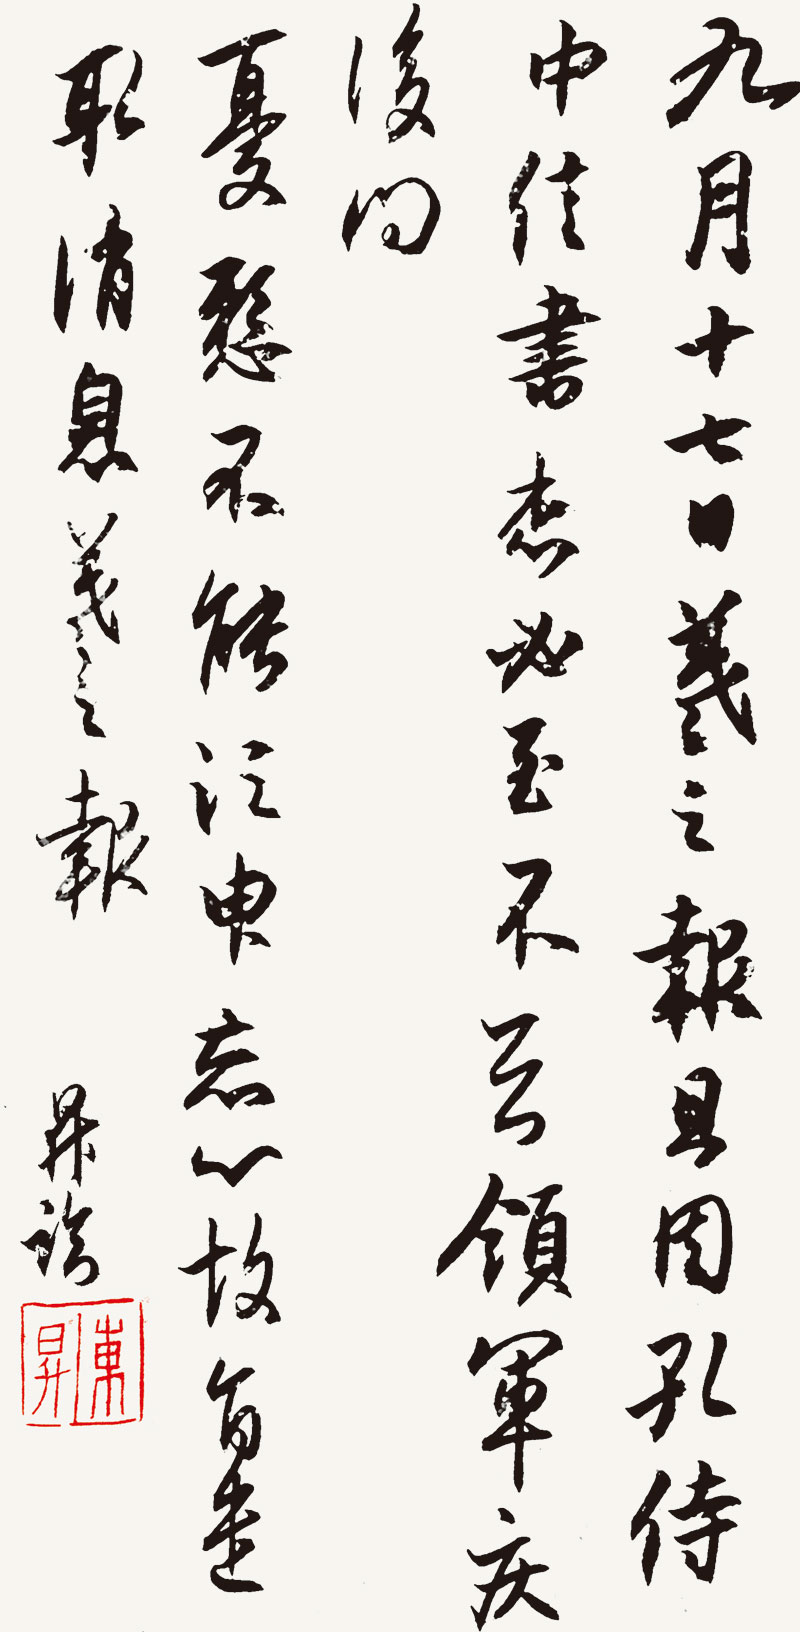 九月十七日羲之報且因孔侍
中信書想必至不知領軍疾
後問
憂懸不能須臾忘心故旨遣
取消息羲之報
昇臨
東昇